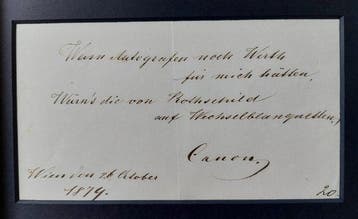 Wenn Autografen noch Werth
für mich hätten,
Wärn's die von Rothschild
auf Wechselblanquetten.
Canon
Wien den 26 October
1879.
20.